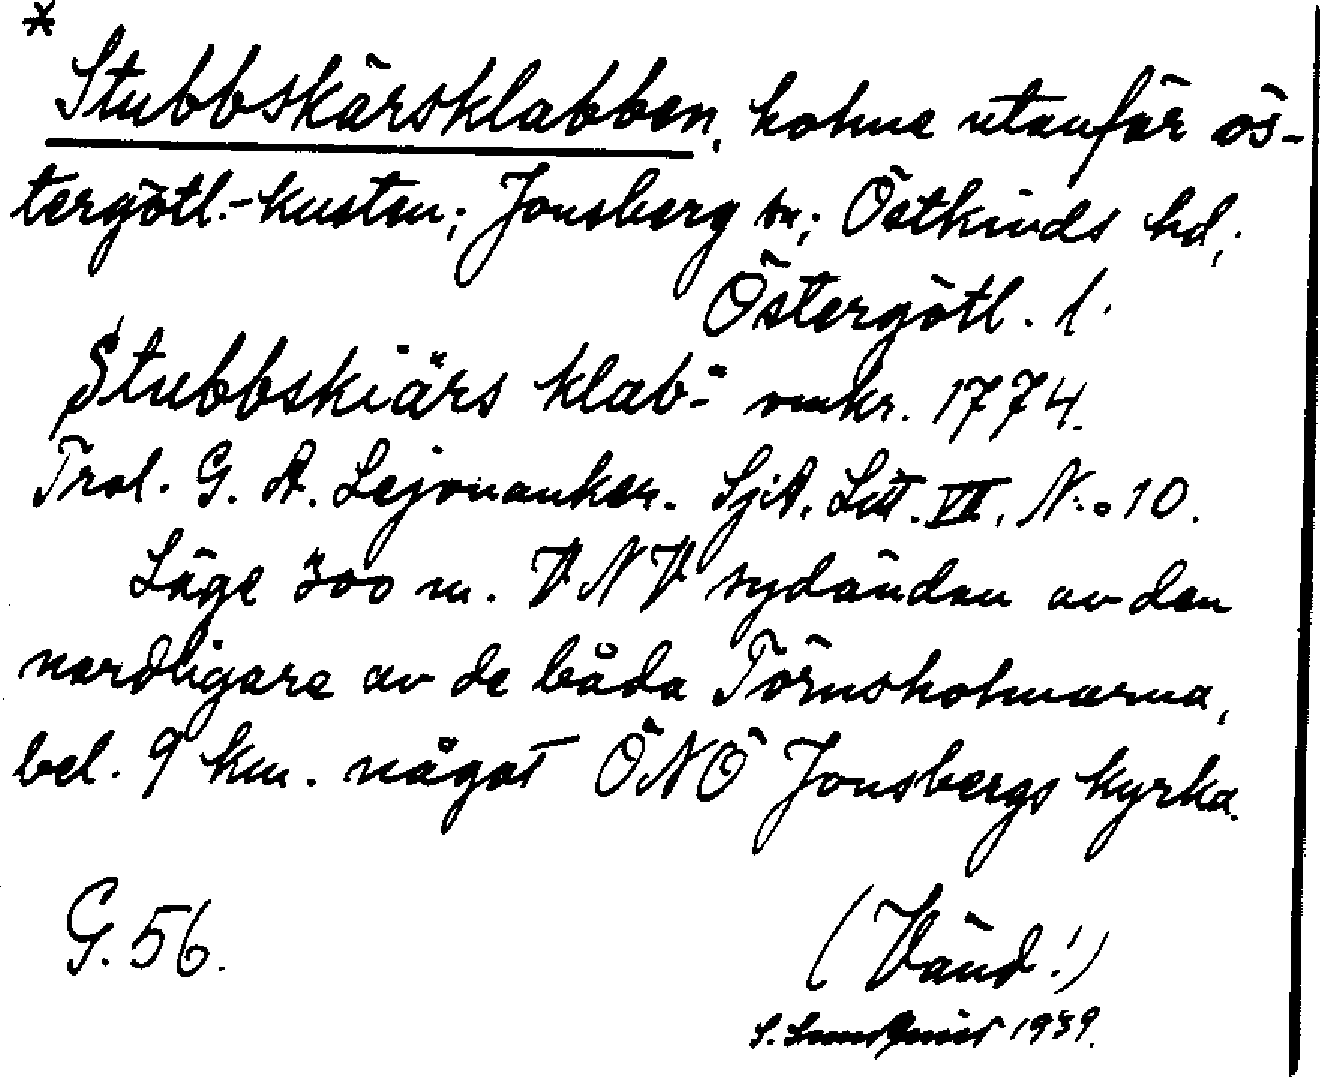 *
Stubbskärsklabben, holme utanför ös-
tergötl.-kusten; Jonsberg sn; Östkinds hd;
Östergötl. l.
Stubbskiärs klab- omkr. 1774.
Trol. G. A. Lejonanker. SjA. Litt. VII. N:o 10.
Läge 300 m. VNV sydändan av den
nordligare av de båda Törnsholmarna,
bel. 9 km. något ÖNÖ Jonsbergs kyrka.
G. 56.
(Vänd!)
S. Sundquist 1939.